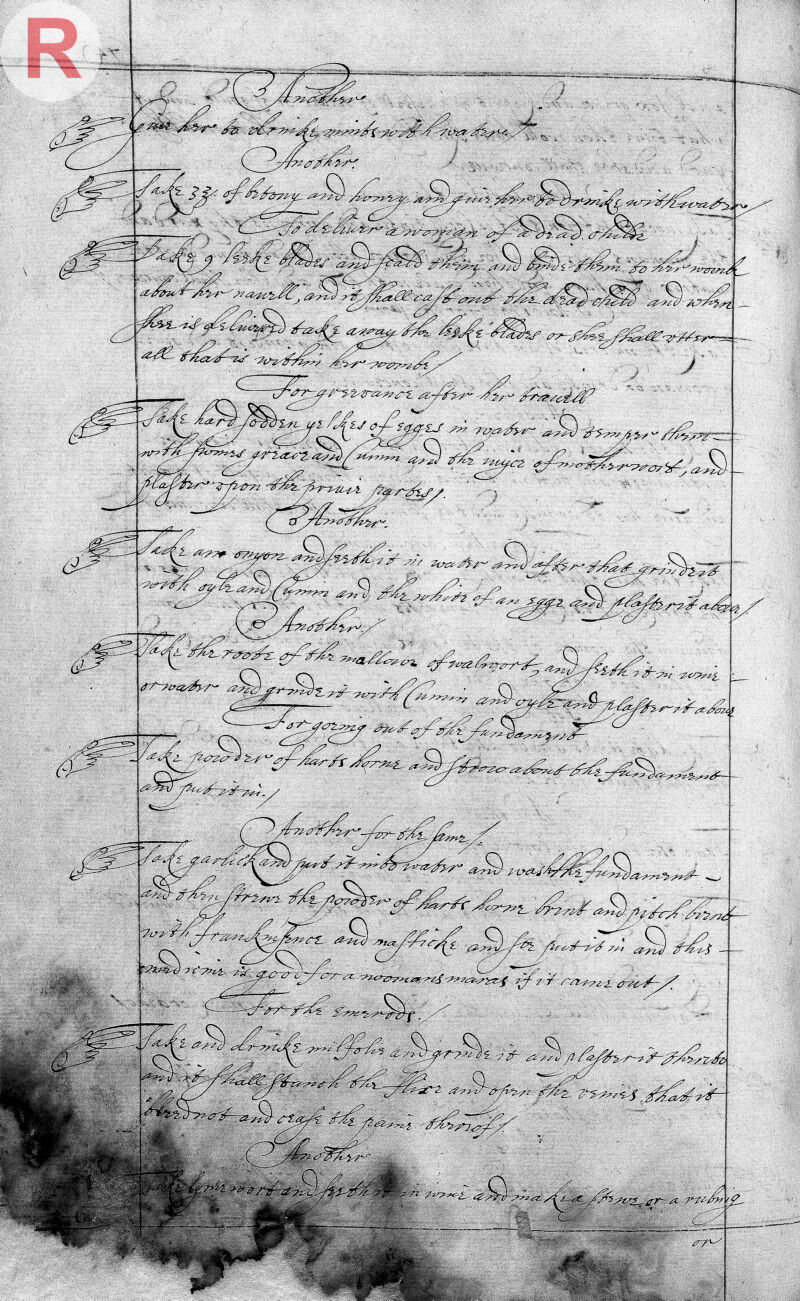 R
Another
Giue her to drinke mints with water /
Another.
Take ʒʒ of betony and honey and giue her to drinke with water /
To deliuer a woman of a dead childe
Take 9 leeke blades and scald them and binde them to her wombe
about her nauell, and it shall cast out the dead child and when
shee is deliuered take away the leeke blades or shee shall vtter
all that is within her wombe /
For greevance after her trauell
Take hard sodden yelkes of egges in water and temper them
with swines greace and Cumin and the iuyce of motherwort, and
plaster vpon the priuie partes /.
Another.
Take an onyon and seeth it in water and after that grinde it
with oyle and Cumin and the white of an egge and plaster it aboue /
Another. /
Take the roote of the mallowe of walwort, and seeth it in wine
or water and grinde it with Cumin and oyle and plaster it aboue
For going out of the fundament
Take powder of harts horne and strow about the fundament
and put it in. /
Another for the same /.
Take garlick and put it into water and wash the fundament
and then strewe the powder of harts horne brint and pitch brent
with franknsence and masticke and soe put it in and this
medicine is good for a womans if it came out /.
For the emerods. /
Take and drinke milfolie and grinde it and plaster it thereto
and it shall stanch the flixe and open the veines that it
bleed not and cease the paine therof /.
Another
Take and seeth it in wine and make a stewe or a rubing
or